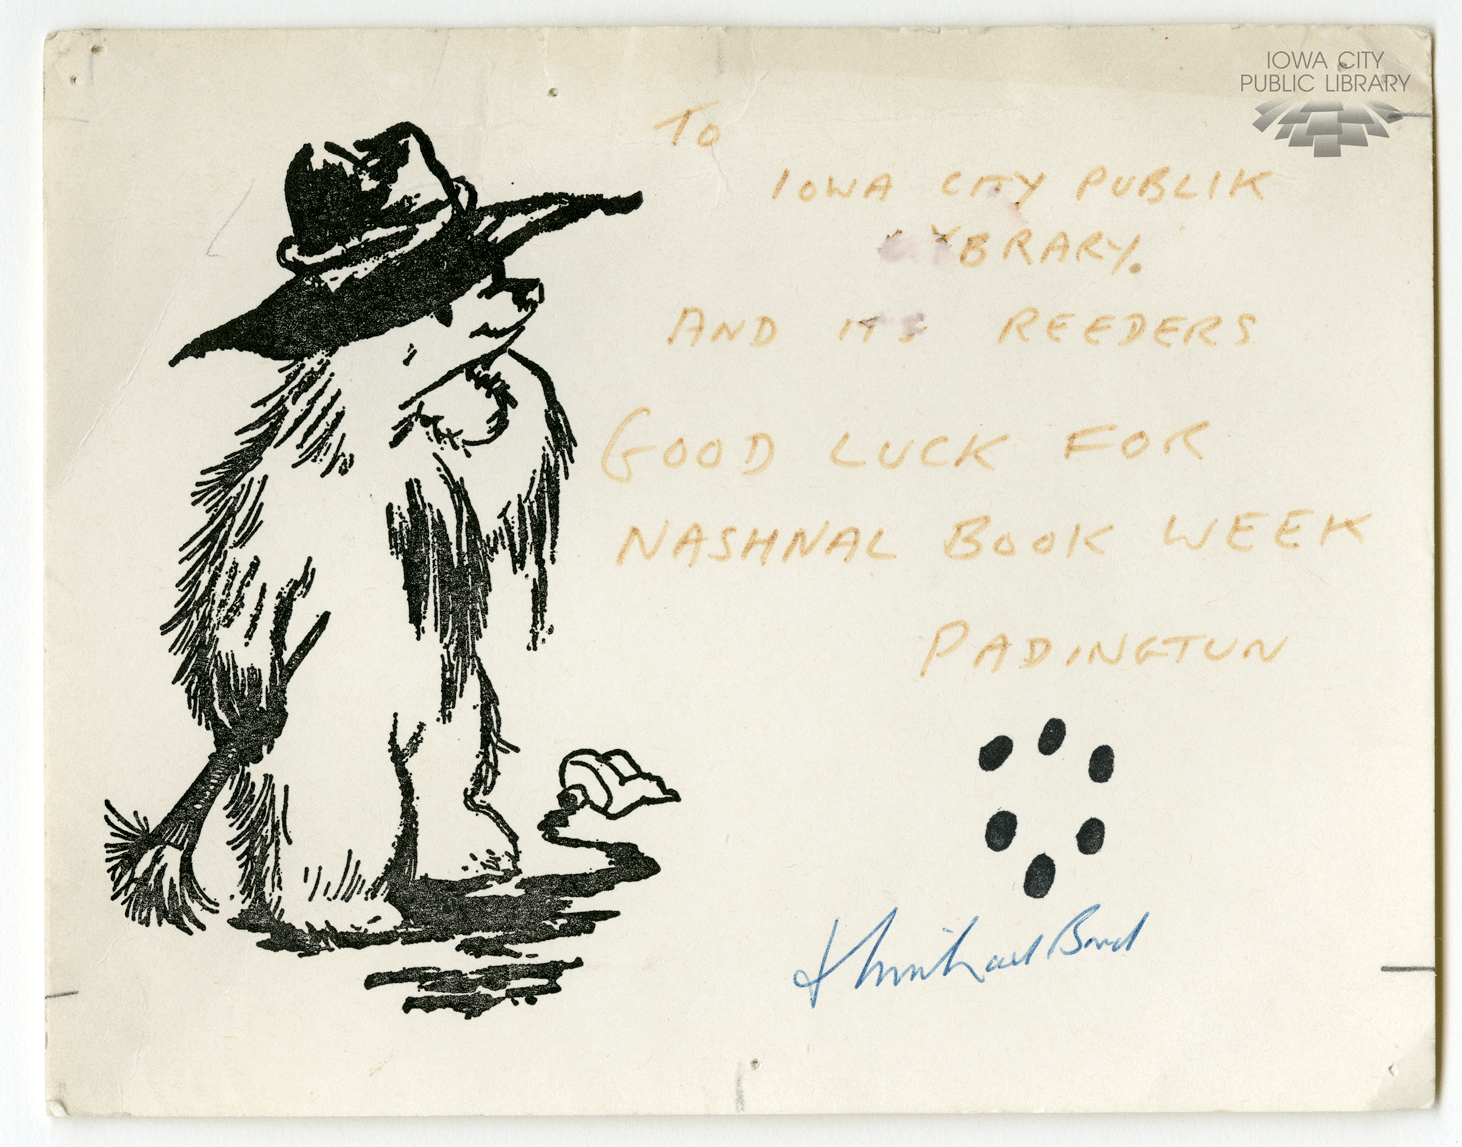 IOWA CITY
PUBLIC LIBRARY
To
IOWA CITY PUBLIK
LYBRARY.
AND ITS REEDERS
GOOD LUCK FOR
NASHNAL BOOK WEEK
PADINGTUN
& Michael Bond